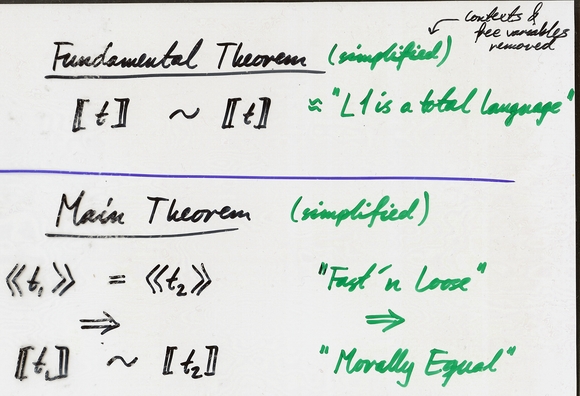 contexts &
free variables
removed
Fundamental Theorem (simplified)
⟦t⟧ ~ ⟦t⟧ ≈ "L1 is a total language"
Main Theorem (simplified)
⟪t₁⟫ = ⟪t₂⟫ "Fast 'n Loose"
⇒ ⇒
⟦t₁⟧ ~ ⟦t₂⟧ "Morally Equal"